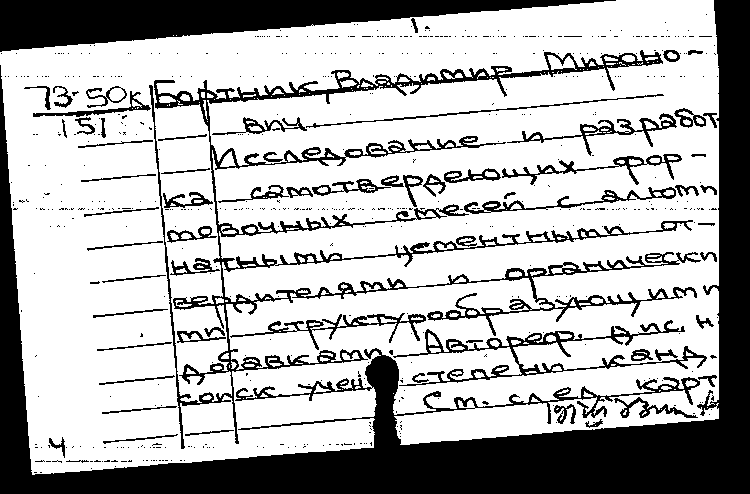 1.
73-50к Бортник, Владимир Мироно-
151 вич.
Исследование и разработ
ка самотвердеющих фор-
мовочных смесей с алюми
натными цементными от-
вердителями и органически
ми структурообразующими
добавками. Автореф. дис. н
соиск учен степени канд.
См. след. карт
4